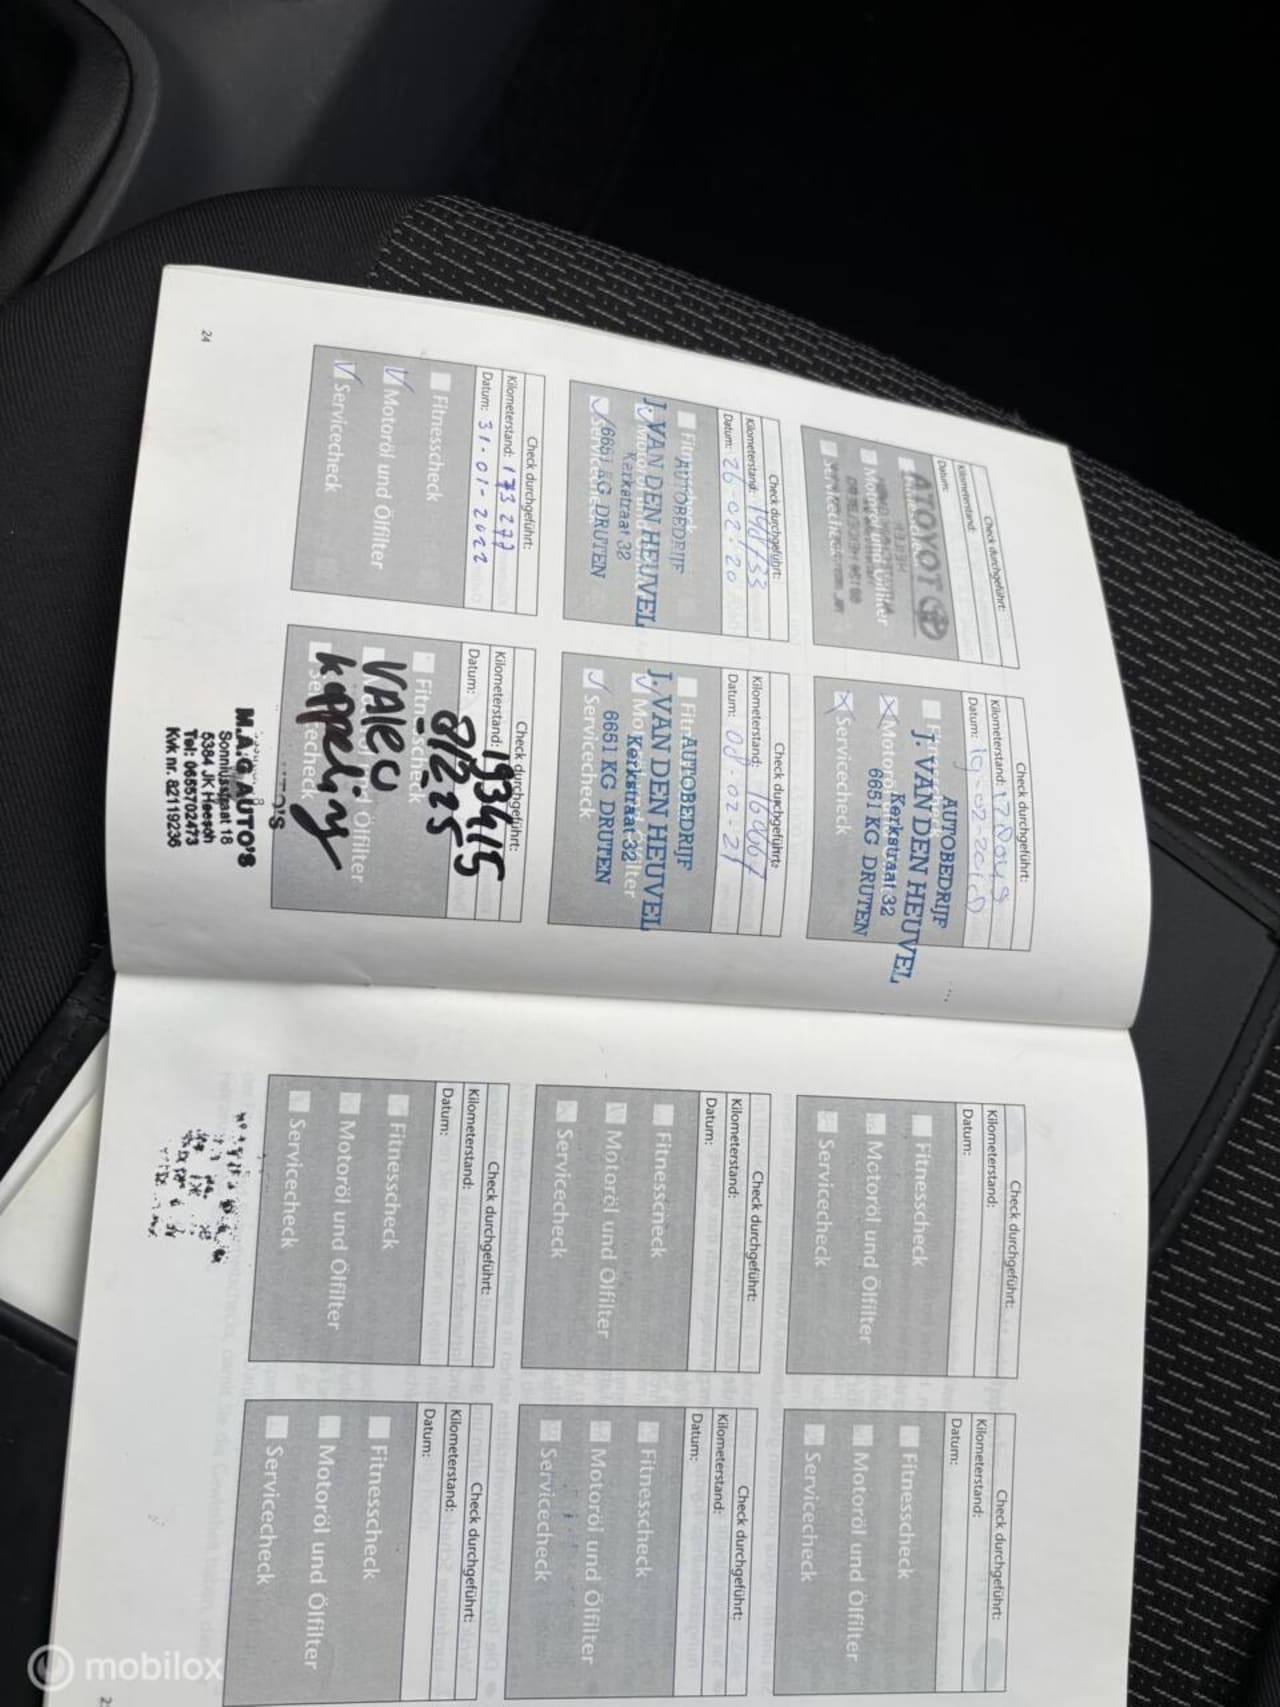 Check durchgeführt:
Kilometerstand:
Datum:
TOYOTA
Motoröl und Ölfilter
Servicecheck
Check durchgeführt:
Kilometerstand:
Datum: 19-02-2019
AUTOBEDRIJF
J. VAN DEN HEUVEL
Kerkstraat 32
6651 KG DRUTEN
Servicecheck
Check durchgeführt:
Kilometerstand:
Datum: 26-02-20
AUTOBEDRIJF
J. VAN DEN HEUVEL
Kerkstraat 32
6651 KG DRUTEN
Servicecheck
Check durchgeführt:
Kilometerstand:
Datum: 08-02-21
AUTOBEDRIJF
J. VAN DEN HEUVEL
Kerkstraat 32
6651 KG DRUTEN
Servicecheck
Check durchgeführt:
Kilometerstand: 173 277
Datum: 31-01-2022
Fitnesscheck
Motoröl und Ölfilter
Servicecheck
Check durchgeführt:
Kilometerstand: 193415
Datum: 8/2 25
Fitnesscheck
Ölfilter
Servicecheck
M.A.G AUTO'S
Sonniusstraat 18
5384 JK Heesch
Tel: 0655702473
Kvk nr. 82119236
24
Check durchgeführt:
Kilometerstand:
Datum:
Fitnesscheck
Motoröl und Ölfilter
Servicecheck
Check durchgeführt:
Kilometerstand:
Datum:
Fitnesscheck
Motoröl und Ölfilter
Servicecheck
Check durchgeführt:
Kilometerstand:
Datum:
Fitnesscheck
Motoröl und Ölfilter
Servicecheck
Check durchgeführt:
Kilometerstand:
Datum:
Fitnesscheck
Motoröl und Ölfilter
Servicecheck
Check durchgeführt:
Kilometerstand:
Datum:
Fitnesscheck
Motoröl und Ölfilter
Servicecheck
Check durchgeführt:
Kilometerstand:
Datum:
Fitnesscheck
Motoröl und Ölfilter
Servicecheck
mobilox